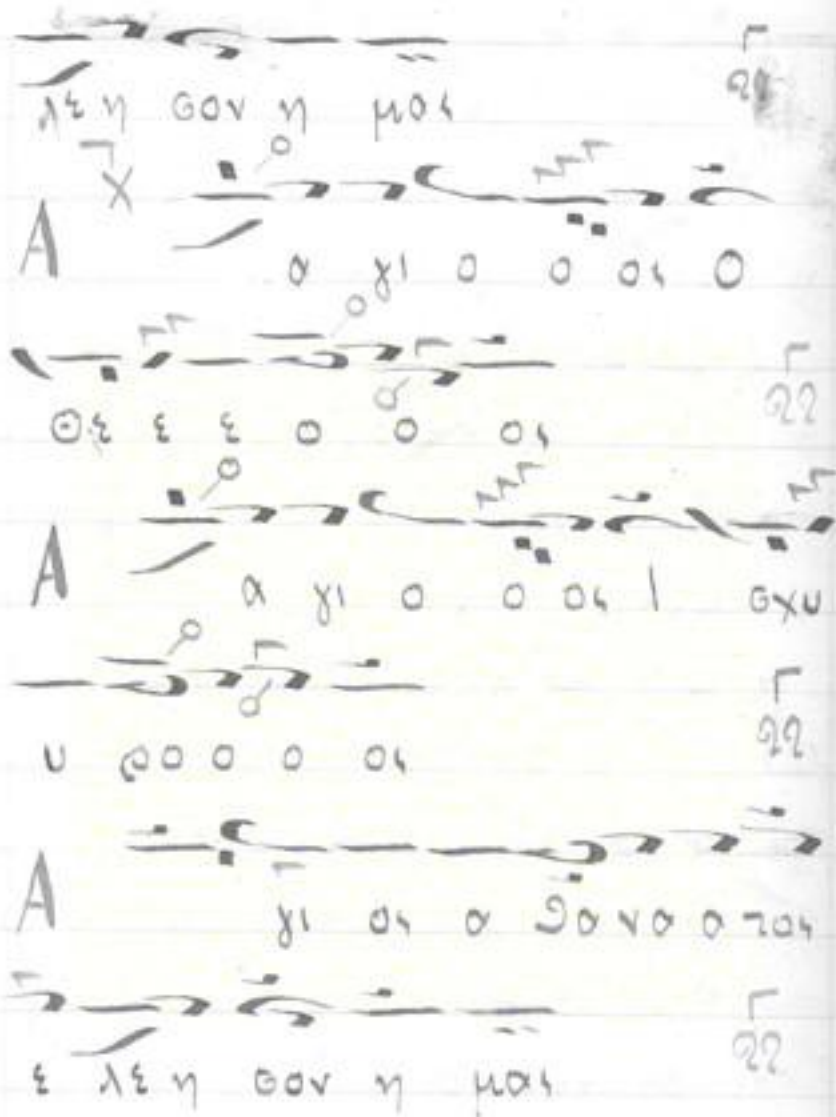 λε η σον η μας
Α α γι ο ο ος Ο
Θε ε ε ο ο ος
Α α γι ο ο ος Ι σχυ
υ ρο ο ο ος
Α γι ος α θα να α τος
ε λε η σον η μας